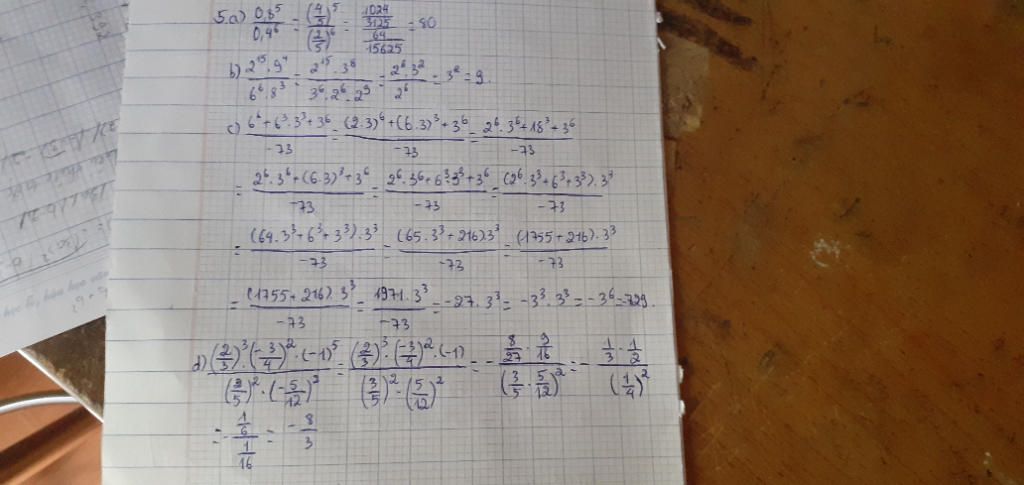 5.a) 0,8⁵/0,4⁶ = (4/5)⁵/(2/5)⁶ = (1024/3125)/(64/15625) = 80
b) 2¹⁵·9⁴/6⁶·8³ = 2¹⁵·3⁸/3⁶·2⁶·2⁹ = 2⁶·3²/2⁶ = 3² = 9.
c) 6⁶+6³·3³+3⁶/-73 = (2.3)⁶+(6.3)³+3⁶/-73 = 2⁶·3⁶+18³+3⁶/-73
= 2⁶·3⁶+(6.3)³+3⁶/-73 = 2⁶·3⁶+6³·3³+3⁶/-73 = (2⁶·3³+6³+3³)·3³/-73
= (64·3³+6³+3³)·3³/-73 = (65·3³+216)·3³/-73 = (1755+216)·3³/-73
= (1755+216)·3³/-73 = 1971·3³/-73 = -27·3³ = -3³·3³ = -3⁶ = -729.
d) (2/3)³·(-3/4)²·(-1)⁵/(2/5)²·(-5/12)² = (2/3)³·(-3/4)²·(-1)/(3/5)²·(5/12)² = - (8/27·9/16)/(3/5·5/12)² = - (1/3·1/2)/(1/4)²
= - (1/6)/(1/16) = -8/3